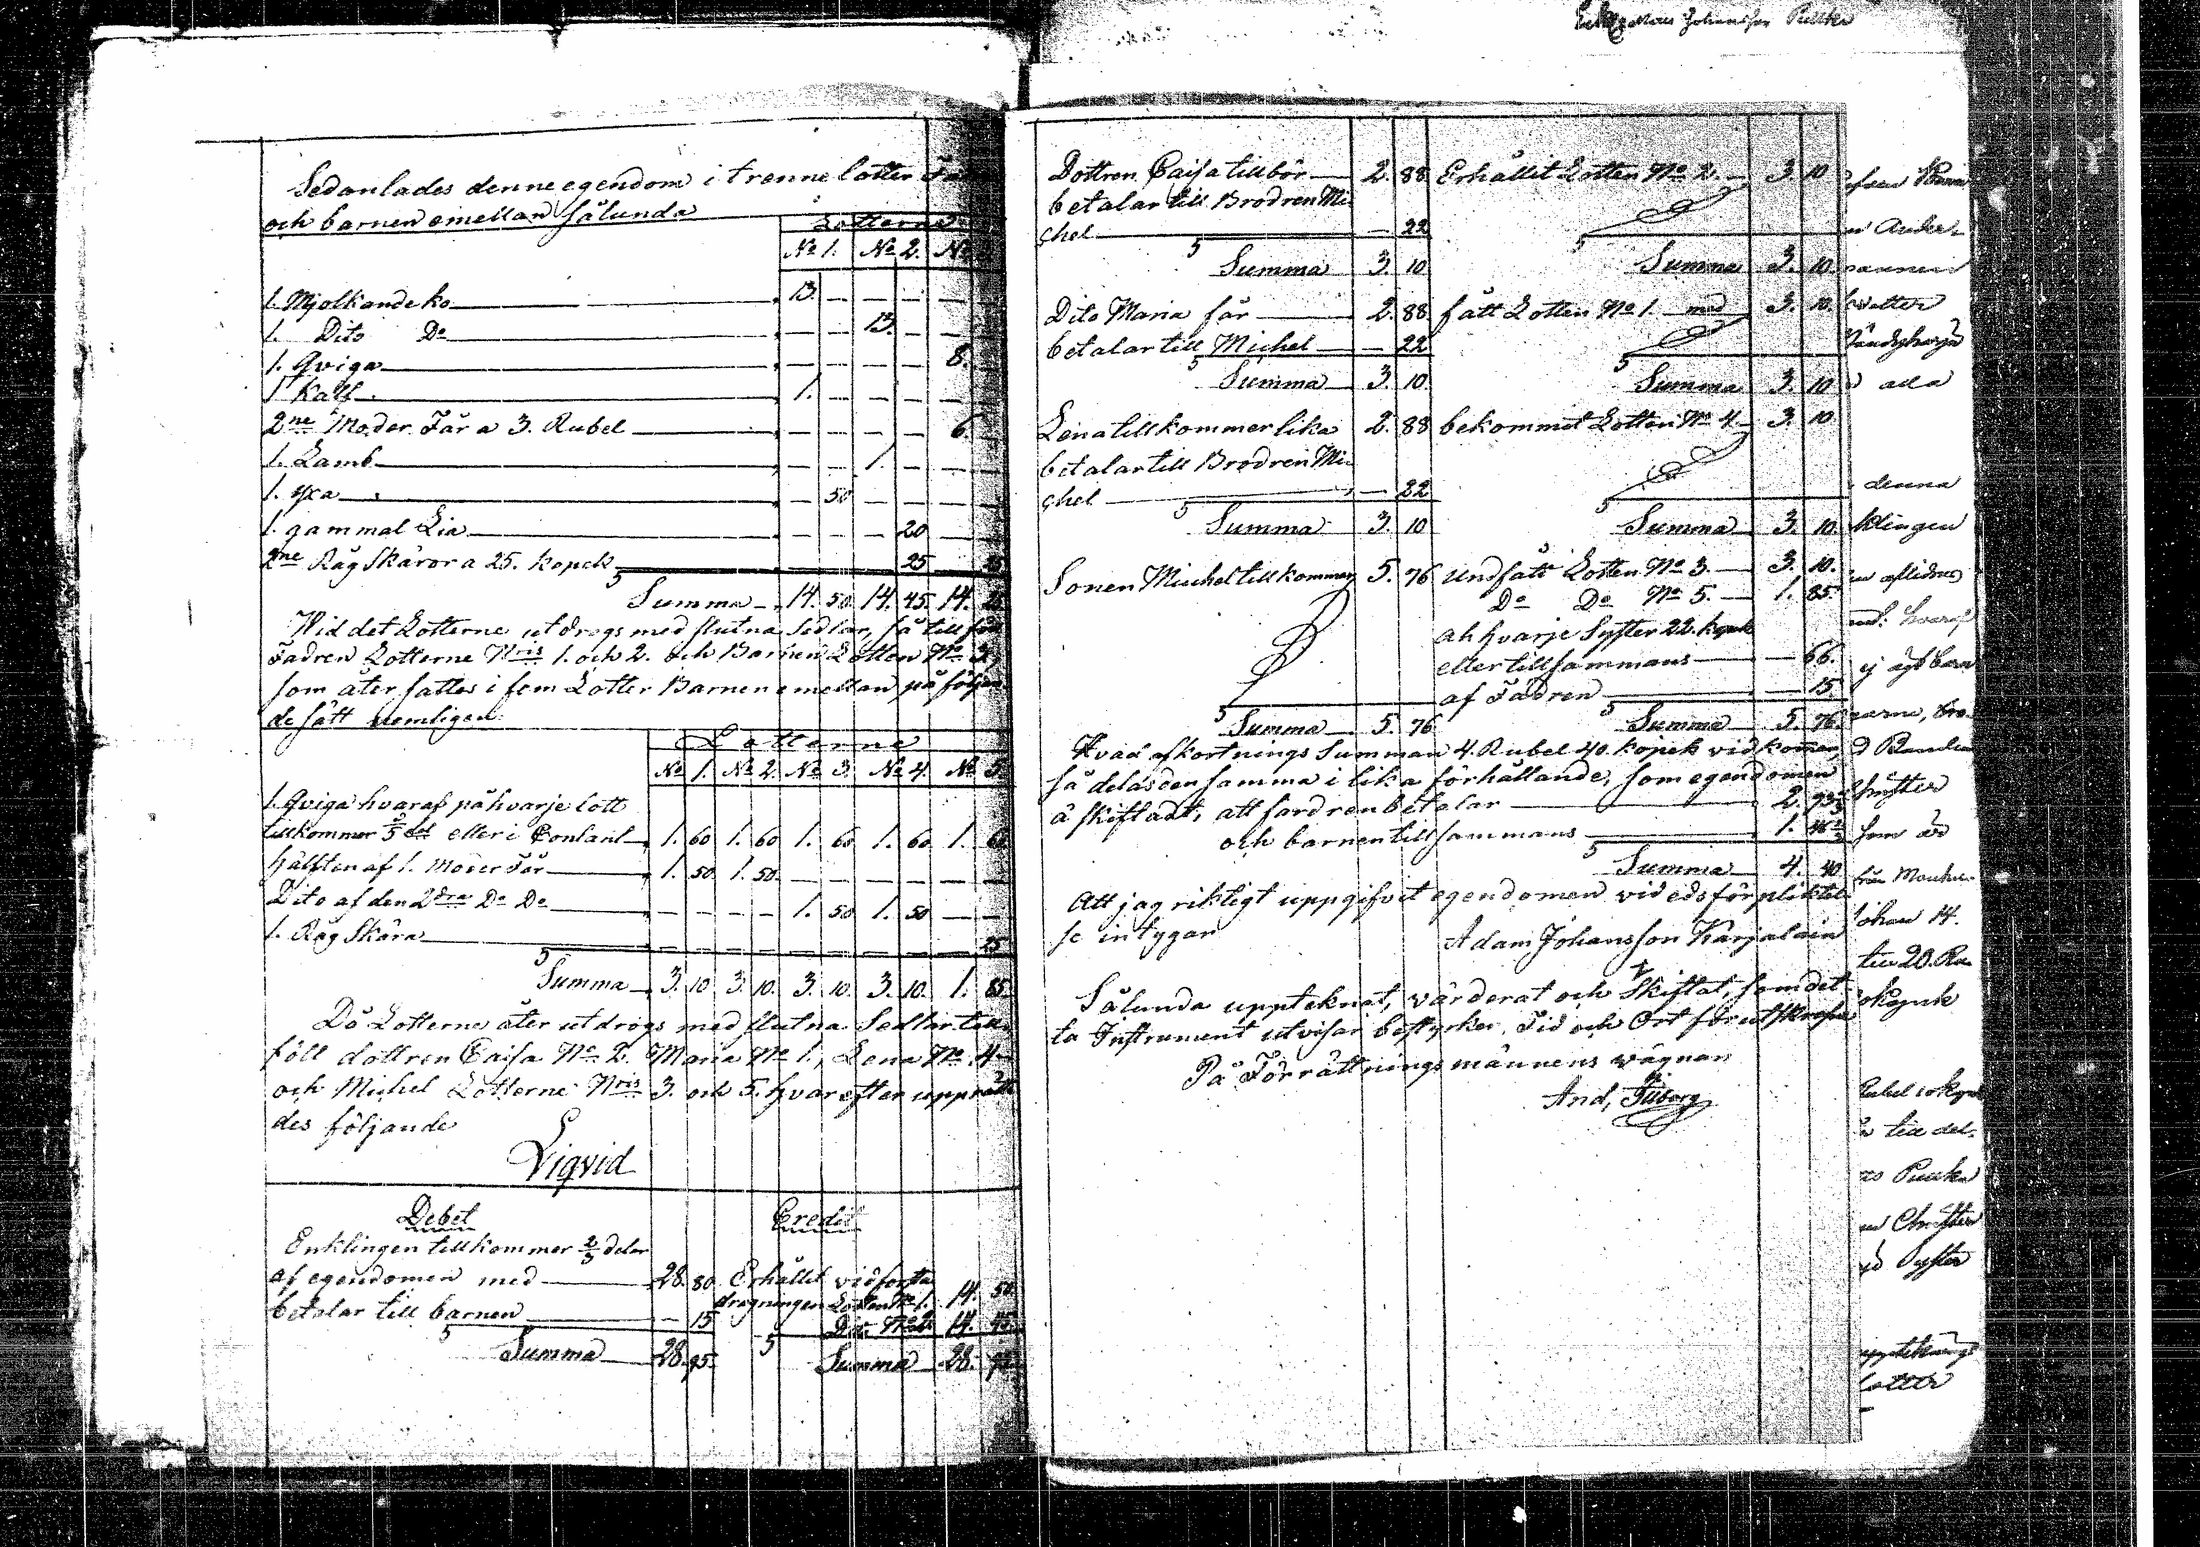 Sedan lades denne egendom i trenne lotter
och barnen emellan sålunda
Lotterne
No 1. No 2. No
1. Mjolkande ko 13. — — — —
1. Dito Do — — 13. — —
1. Qviga — — — — 8.
1 Kalf 1. — — — —
2ne Moder Får a 3. Rubel — — — — 6.
1. Lamb — — 1. — —
1. yxa — 50 — — —
1. gammal Lia — — — 20 —
2ne Råg Skäror a 25. kopek 25 25
Summa 14. 50 14. 45. 14. 25
Wid det Lotterne utdrogs med slutna Sedlar, så tillföll
Fadren Lotterne Nris 1. och 2. och Barnen Lotten No 3,
som åter sattes i fem Lotter Barnen emellan på följan
de sätt nemligen:
Lotterne
No 1. No 2. No 3. No 4. No 5
1. Qviga hvaraf på hvarje lott
tillkommer 1/5 del eller i Contant 1. 60 1. 60 1. 60 1. 60 1. 60
hälften af 1. Moder Får 1. 50 1. 50 — — — — — —
Dito af den 2dra Do Do — — — — 1. 50 1. 50 — —
1. Råg Skära — — — — — — — — — 25
Summa 3. 10 3. 10. 3. 10. 3. 10. 1. 85.
Då Lotterne åter utdrogs med slutna Sedlar till
föll dottren Caisa No 2. Maria No 1, Lena No 4
och Michel Lotterne Nris 3. och 5. hvarefter upprätta
des följande
Liqvid
Debet Credit
Enklingen tillkommer 2/3 delar
af egendomen med 28. 80 Erhållit vid första
dragningen Lotten No 1. 14. 50
betalar till barnen — 15 Dito No 2 14. 45.
Summa 28. 95. Summa 28. 95
Enkl Johansson
Dottren Caisa tillbör 2. 88 Erhållit Lotten No 2. 3. 10
betalar till Brodren Mi
chel — 22
Summa 3. 10 Summa 3. 10.
Dito Maria får 2. 88 fått Lotten No 1. med 3. 10.
betalar till Michel — 22
Summa 3. 10. Summa 3. 10
Lena tillkommer lika 2. 88 bekommit Lotten No 4. 3. 10
betalar till Brodren Mi
chel — 22
Summa 3. 10 Summa 3. 10.
Sonen Michel tillkommer 5. 76 undfått Lotten No 3. 3. 10.
Do Do No 5. 1. 85.
af hvarje Syster 22. kopek
eller tillsammans — 66.
af Fadren — 15
Summa 5. 76 Summa 5. 76.
Hvad afkortnings Summan 4. Rubel 40. kopek vidkommer,
så delas densamma i lika förhållande, som egendomen
är skiftadt, att fardren betalar 2. 93 1/3
och barnen tillsammans 1. 46 2/3
Summa 4. 40
Att jag riktigt uppgifvit egendomen vid edsförpliktel
se intygar
Adam Johansson Karjalain
Sålunda uppteknat, värderat och Skiftat, som det
ta Instrument utvisar bestyrker, Tid och Ort förutskrefne
På Förrättningsmännens vägnar
And, Tilborg
denna
Klingen
ej ägt barn
som är
Johan 14.
till 20.
till del
Syster
lotter